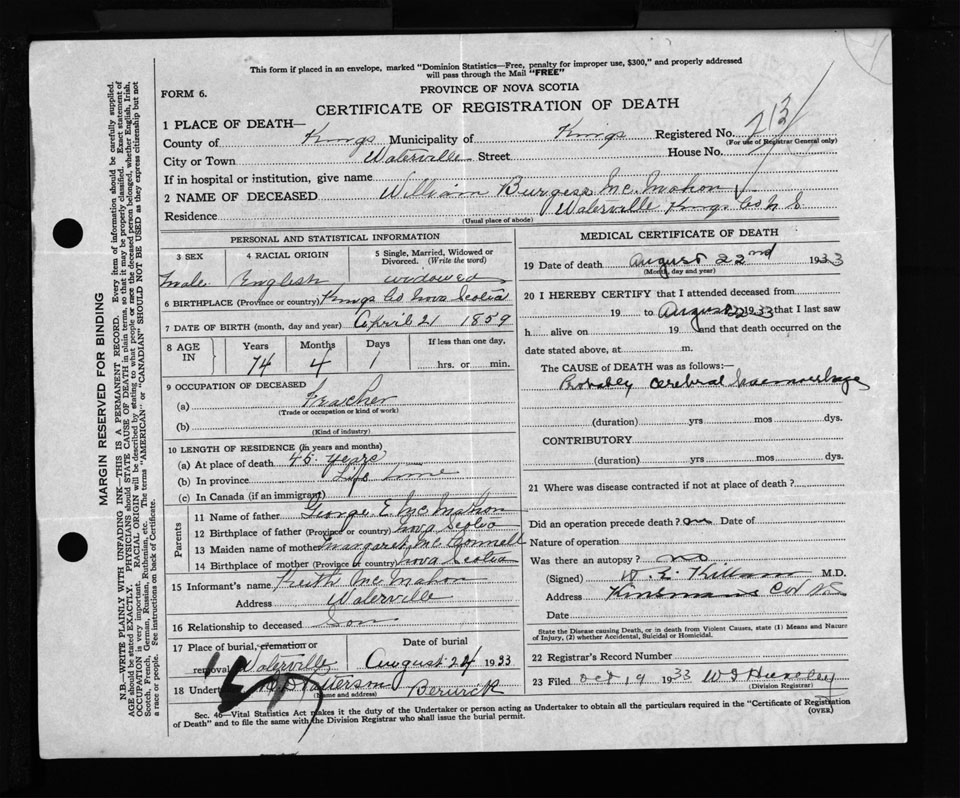 This form if placed in an envelope, marked "Dominion Statistics—Free, penalty for improper use, $300," and properly addressed
will pass through the Mail "FREE"
FORM 6.
PROVINCE OF NOVA SCOTIA
CERTIFICATE OF REGISTRATION OF DEATH
1 PLACE OF DEATH—
County of Kings Municipality of Kings Registered No.
(For use of Registrar General only)
City or Town Waterville Street House No.
If in hospital or institution, give name
2 NAME OF DECEASED William Burgess Mc.Mahon
Residence Waterville Kings Co N S
(Usual place of abode)
PERSONAL AND STATISTICAL INFORMATION
3 SEX 4 RACIAL ORIGIN 5 Single, Married, Widowed or
Divorced. (Write the word)
Male English widowed
6 BIRTHPLACE (Province or country) Kings Co Nova Scotia
7 DATE OF BIRTH (month, day and year) April 21 1859
8 AGE IN Years Months Days If less than one day,
74 4 1 hrs. or min.
9 OCCUPATION OF DECEASED
(a) Teacher
(Trade or occupation or kind of work)
(b)
(Kind of industry)
10 LENGTH OF RESIDENCE (in years and months)
(a) At place of death 45 years
(b) In province Life time
(c) In Canada (if an immigrant)
Parents
11 Name of father George E. Mc Mahon
12 Birthplace of father (Province or country) Nova Scotia
13 Maiden name of mother Margaret Mc Connell
14 Birthplace of mother (Province or country) Nova Scotia
15 Informant's name Keith McMahon
Address Waterville
16 Relationship to deceased Son
17 Place of burial, cremation or
removal Waterville
Date of burial
August 24 1933
18 Undertaker Patterson Berwick
(Name and address)
MEDICAL CERTIFICATE OF DEATH
19 Date of death August 22nd 1933
(Month, day and year)
20 I HEREBY CERTIFY that I attended deceased from
19 to August 22 1933 that I last saw
h alive on 19 and that death occurred on the
date stated above, at m.
The CAUSE OF DEATH was as follows:—
Probably cerebral haemorrhage
(duration) yrs mos dys.
CONTRIBUTORY
(duration) yrs mos dys.
21 Where was disease contracted if not at place of death?
Did an operation precede death? no Date of
Nature of operation
Was there an autopsy? no
(Signed) M.D.
Address Kinsmans Cor NS
Date
State the Disease causing Death, or in death from Violent Causes, state (1) Means and Nature
of Injury, (2) whether Accidental, Suicidal or Homicidal.
22 Registrar's Record Number
23 Filed Oct 19 1933
(Division Registrar)
Sec. 46—Vital Statistics Act makes it the duty of the Undertaker or person acting as Undertaker to obtain all the particulars required in the "Certificate of Registration
of Death" and to file the same with the Division Registrar who shall issue the burial permit.
(OVER)
MARGIN RESERVED FOR BINDING
N.B.—WRITE PLAINLY WITH UNFADING INK—THIS IS A PERMANENT RECORD. Every item of information should be carefully supplied.
AGE should be stated EXACTLY. PHYSICIANS should STATE CAUSE OF DEATH in plain terms, so that it may be properly classified. Exact statement of
OCCUPATION is very important. RACIAL ORIGIN will be described by stating to what people or race the deceased person belonged, whether English, Irish,
Scotch, French, German, Russian, Ruthenian, etc. The terms "AMERICAN" or "CANADIAN" SHOULD NOT BE USED as they express citizenship but not
a race or people. See instructions on back of Certificate.